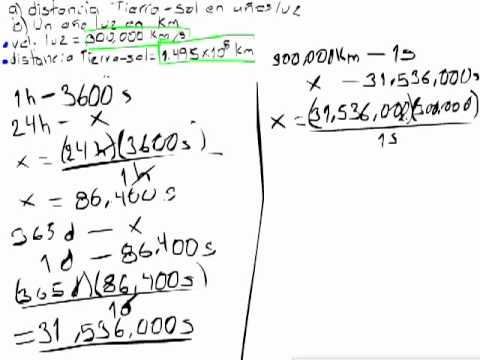 a) distancia Tierra-sol en años luz
b) Un año luz en km
vel. luz = 300,000 km/s
distancia Tierra-sol = 1.495x10⁸ km
1h - 3600 s
24h - x
x = (24h)(3600s)
1h
x = 86,400 s
365 d - x
1d - 86,400s
(365d)(86,400s)
1d
= 31,536,000s
300,000km - 1s
x - 31,536,000s
x = (31,536,000)(300,000)
1s